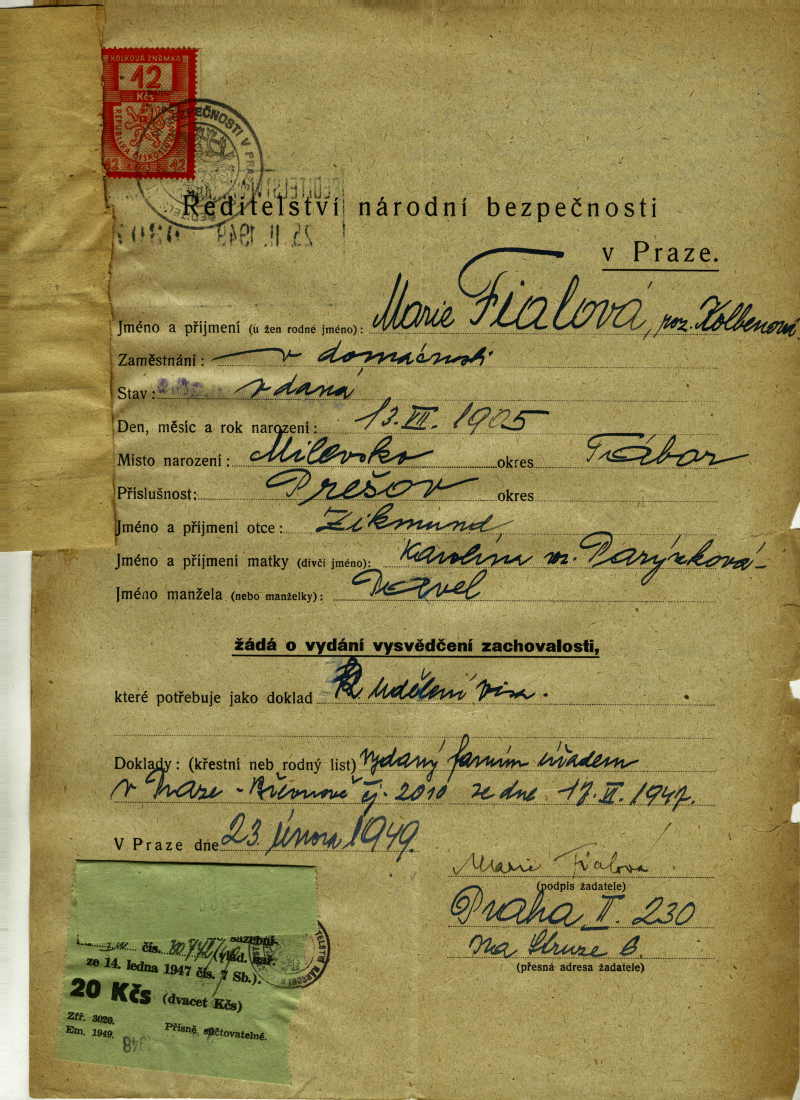 KOLKOVÁ ZNÁMKA
12
Kčs
REPUBLIKA ČESKOSLOVENSKÁ
12 12
BEZPEČNOSTI V PRAZE
Ředitelství národní bezpečnosti
25 II 1949
v Praze.
Jméno a přijmení (u žen rodné jméno): Marie Fialová, roz. Kolbenová
Zaměstnání: v domácnosti
Stav: vdaná
Den, měsíc a rok narození: 13. VII. 1905
Místo narození: Milevsko okres Tábor
Příslušnost: Prešov okres
Jméno a přijmení otce: Zikmund
Jméno a příjmení matky (dívčí jméno): Karolína roz. Parýzková
Jméno manžela (nebo manželky): Pavel
žádá o vydání vysvědčení zachovalosti,
které potřebuje jako doklad k udělení visa.
Doklady: (křestní neb rodný list) vydaný farním úřadem
v Praze - Břevnově čj. 2010 ze dne 17. VI. 1947.
V Praze dne 23. února 1949.
Marie Fialová
(podpis žadatele)
Praha II. 230
Na Struze 6.
(přesná adresa žadatele)
sazebník
čís.
ze 14. ledna 1947 čís. 7 Sb.).
20 Kčs (dvacet Kčs)
Zfř. 3026.
Em. 1949. Přísně súčtovatelné.